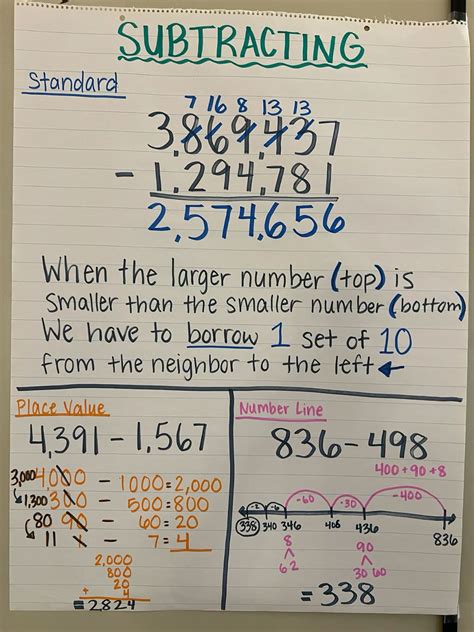 SUBTRACTING
Standard
7 16 8 13 13
3,869,437
- 1,294,781
2,574,656
When the larger number (top) is
smaller than the smaller number (bottom)
We have to borrow 1 set of 10
from the neighbor to the left ←
Place Value
4,391 - 1,567
3,000 4,000 - 1000 = 2,000
1,300 300 - 500 = 800
80 90 - 60 = 20
11 1 - 7 = 4
2,000
800
20
+ 4
= 2824
Number Line
836 - 498
400 + 90 + 8
-2 -6 -60 -30 -400
338 340 346 406 436 836
8
6 2
90
30 60
= 338